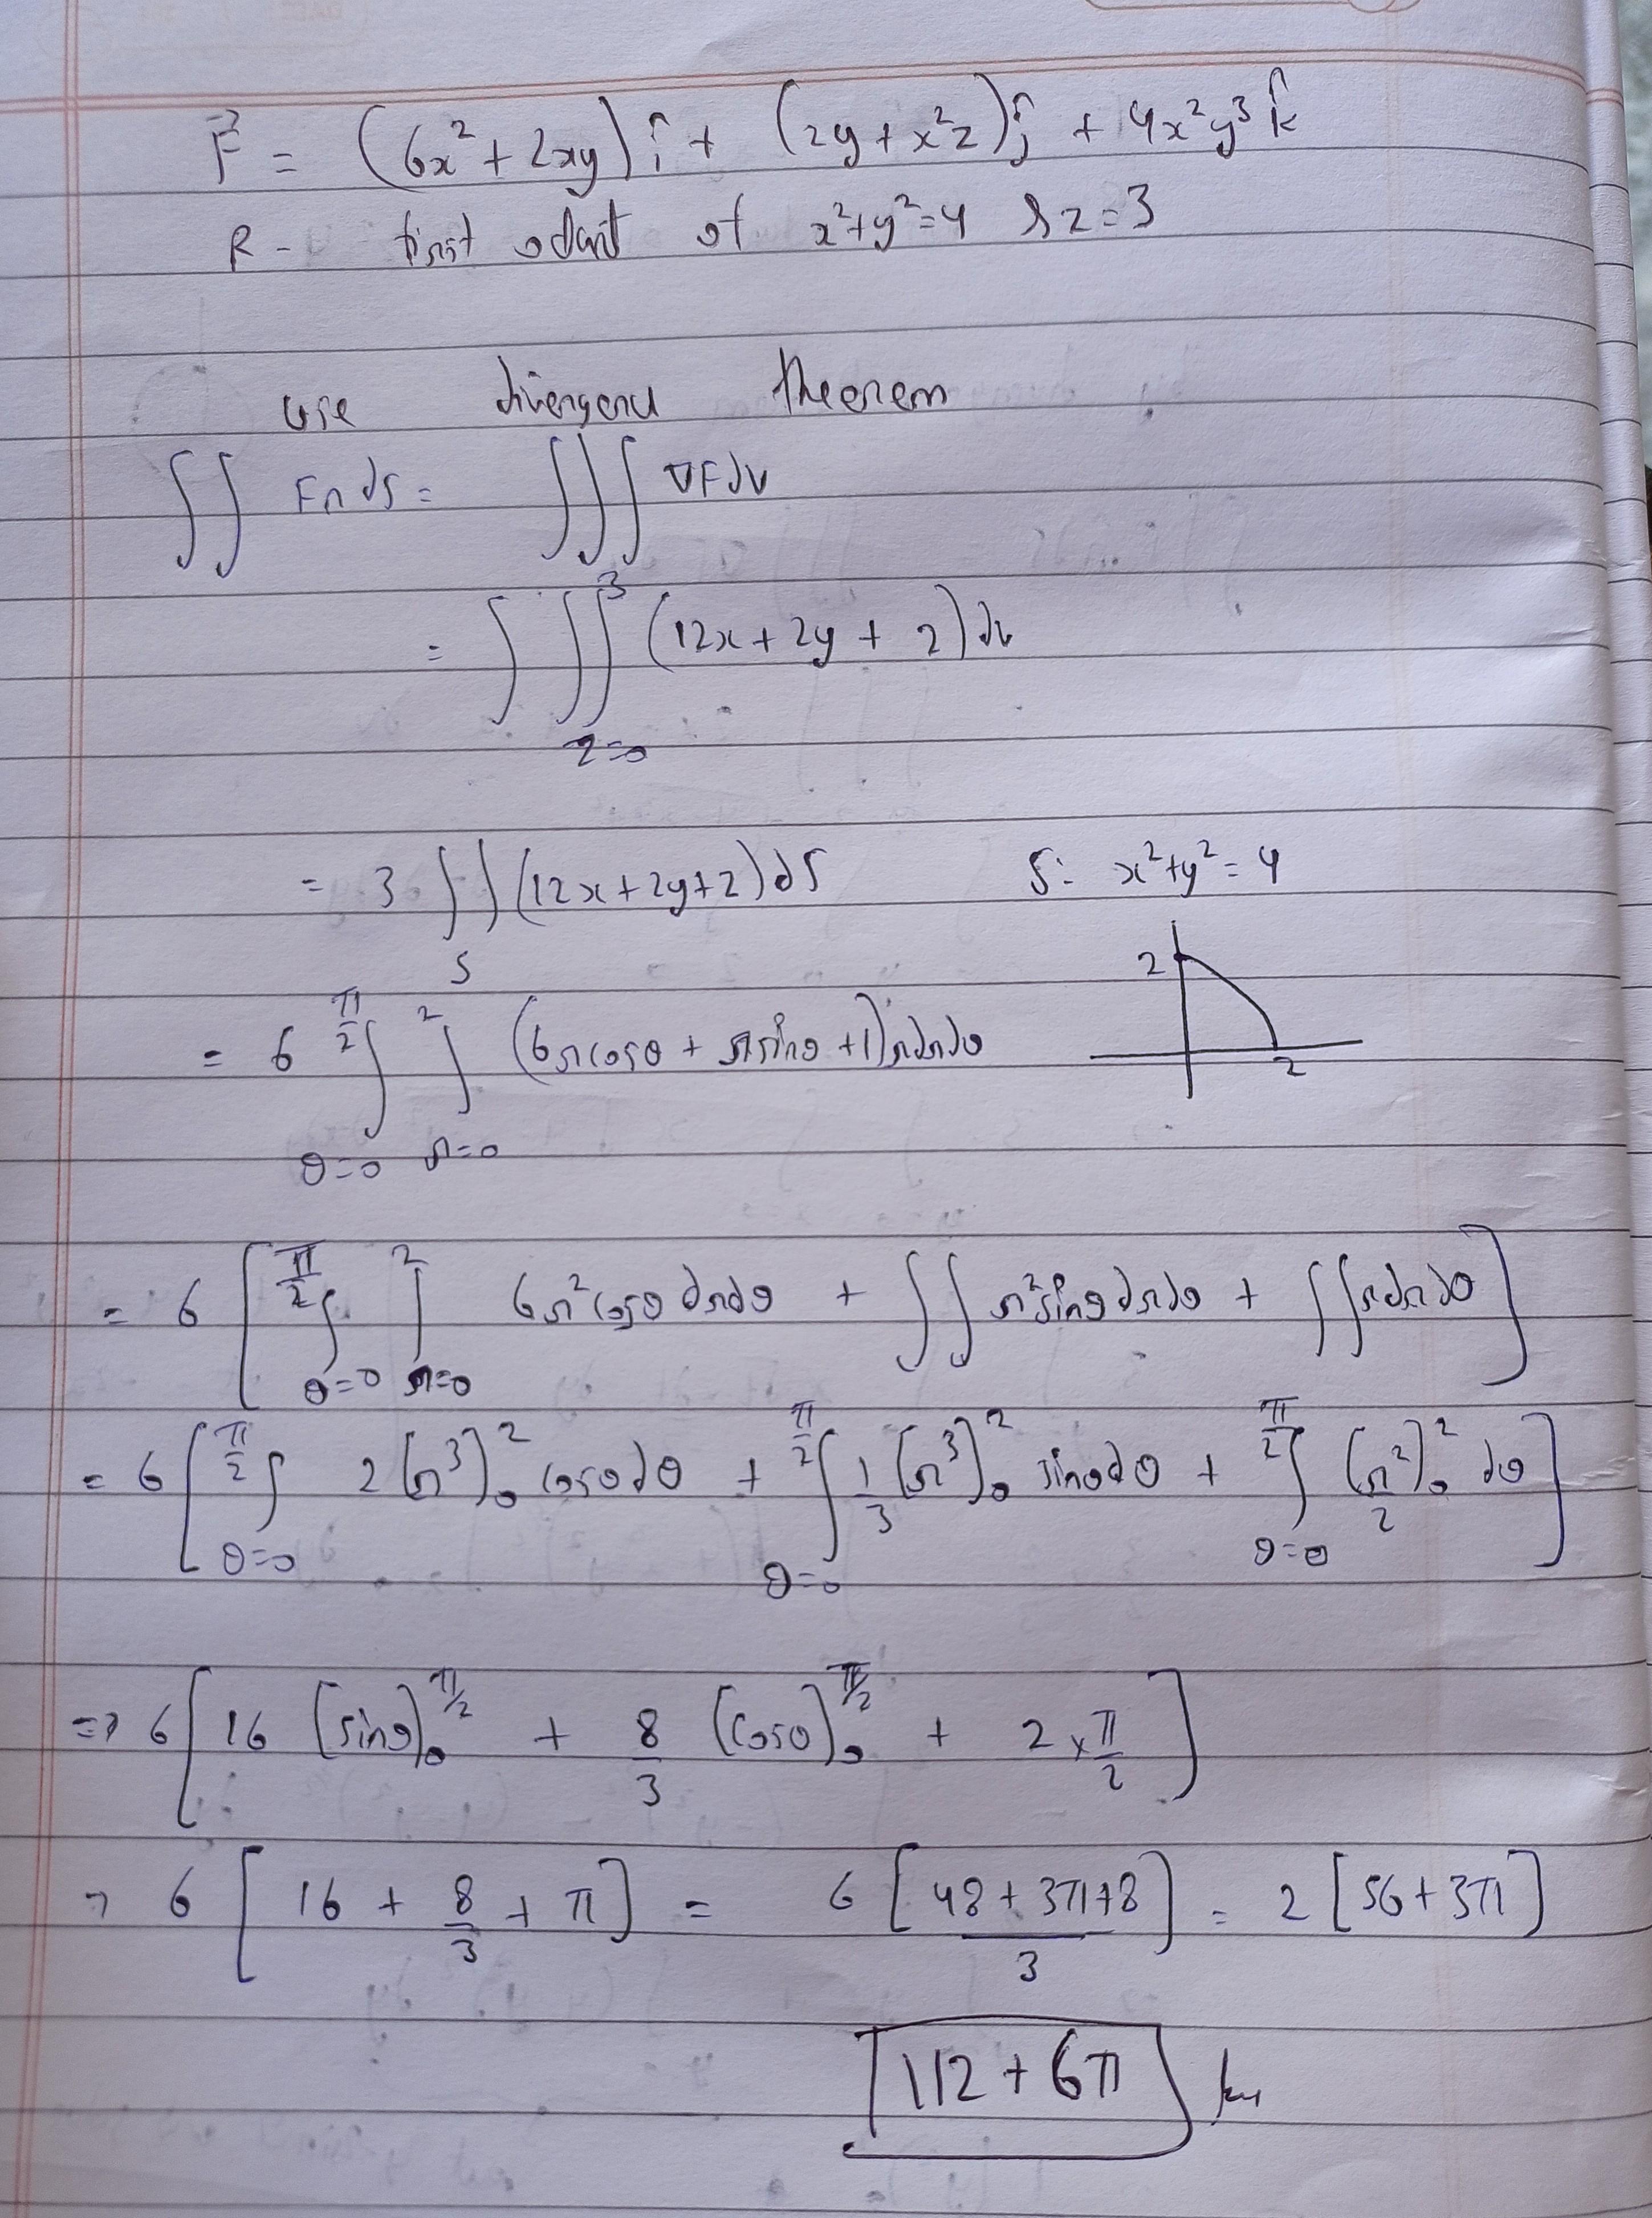 F⃗ = (6x² + 2xy) î + (2y + x²z) ĵ + 4x²y³ k̂
R - first octant of x²+y²=4 & z=3
use divergence theorem
∬ F n ds = ∭ ∇F dv
= ∫∬_{z=0}^{3} (12x + 2y + 2) dv
= 3 ∬_S (12x + 2y + 2) dS S: x²+y² = 4
= 6 ∫_{θ=0}^{π/2} ∫_{r=0}^{2} (6r cosθ + r sinθ + 1) r dr dθ
2
2
= 6 [ ∫_{θ=0}^{π/2} ∫_{r=0}^{2} 6r² cosθ dr dθ + ∬ r² sinθ dr dθ + ∬ r dr dθ ]
= 6 [ ∫_{θ=0}^{π/2} 2 (r³)₀² cosθ dθ + ∫_{θ=0}^{π/2} 1/3 (r³)₀² sinθ dθ + ∫_{θ=0}^{π/2} (r²/2)₀² dθ ]
=> 6 [ 16 (sinθ)₀^{π/2} + 8/3 (cosθ)₀^{π/2} + 2 × π/2 ]
⇒ 6 [ 16 + 8/3 + π ] = 6 [ (48 + 3π + 8)/3 ] = 2 [56 + 3π]
112 + 6π